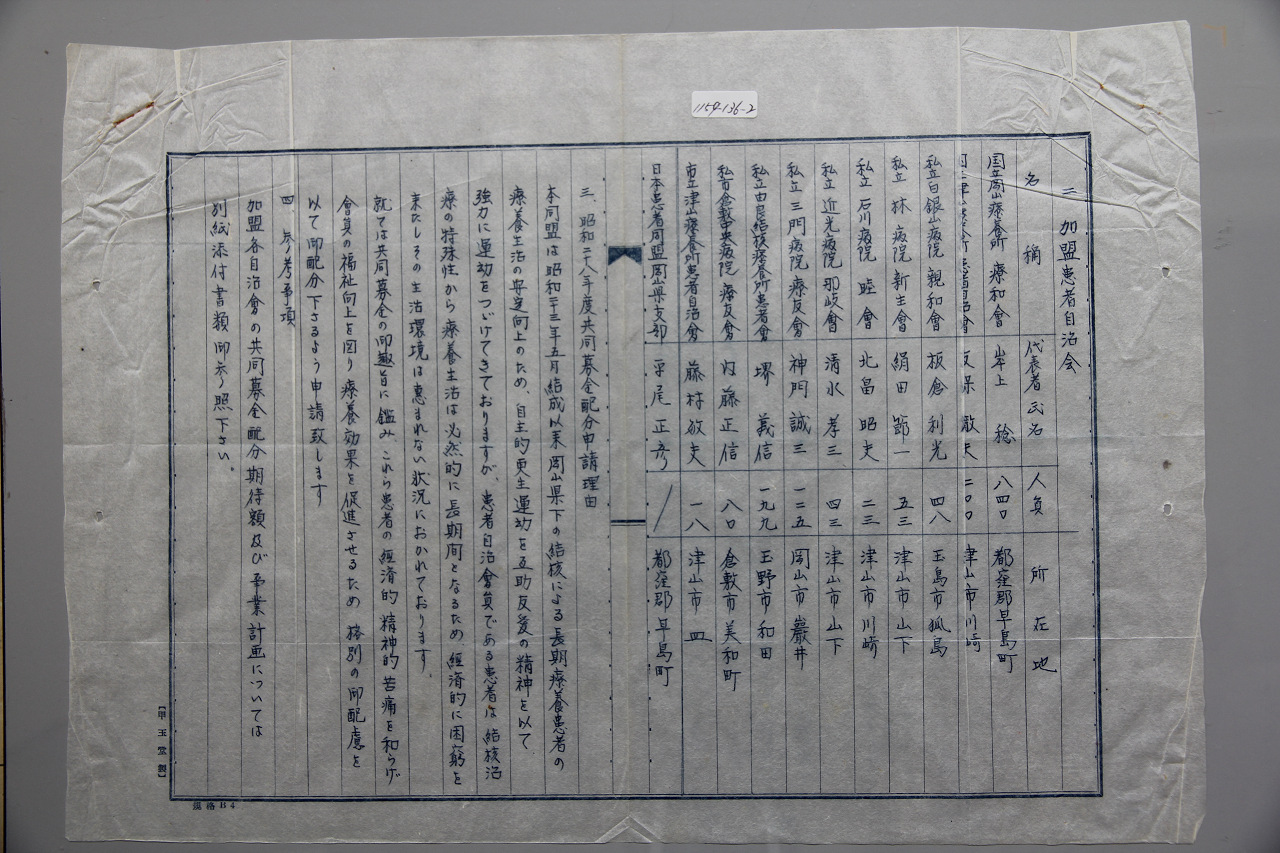 1154-136-2
二、加盟患者自治会
名称 代表者氏名 人員 所在地
国立岡山療養所 療和會 岸上 稔 八四〇 都窪郡早島町
国立津山療養所患者自治會 友保 散夫 二〇〇 津山市川崎
私立白銀山病院 親和會 板倉 利光 四八 玉島市狐島
私立 林 病院 新生會 絹田 節一 五三 津山市山下
私立 石川病院 睦會 北畠 昭夫 二三 津山市川崎
私立 近光病院 那岐會 清水 孝三 四三 津山市山下
私立 三門病院 療友會 神門 誠三 一二五 岡山市巖井
私立由良結核療養所患者會 堺 義信 一九九 玉野市和田
私立倉敷中央病院 療友會 内藤 正信 八〇 倉敷市美和町
市立津山療養所患者自治會 藤村 敏夫 一八 津山市 皿
日本患者同盟岡山県支部 平尾 正彦 / 都窪郡早島町
三、昭和二十八年度共同募金配分申請理由
本同盟は昭和二十三年五月結成以来岡山県下の結核による長期療養患者の
療養生活の安定向上のため、自主的更生運動を互助友愛の精神を以て
強力に運動をつづけてきておりますが、患者自治會員である患者は結核治
療の特殊性から療養生活は必然的に長期間となるため、経済的に困窮を
来たしその生活環境は恵まれない状況におかれております。
就ては共同募金の御趣旨に鑑み、これら患者の経済的精神的苦痛を和らげ
會員の福祉向上を図り療養効果を促進させるため 格別の御配慮を
以て御配分下さるよう申請致します
四、参考事項
加盟各自治會の共同募金配分期待額及び事業計画については
別紙添付書類御参照下さい。
【甲玉堂製】
規格B4